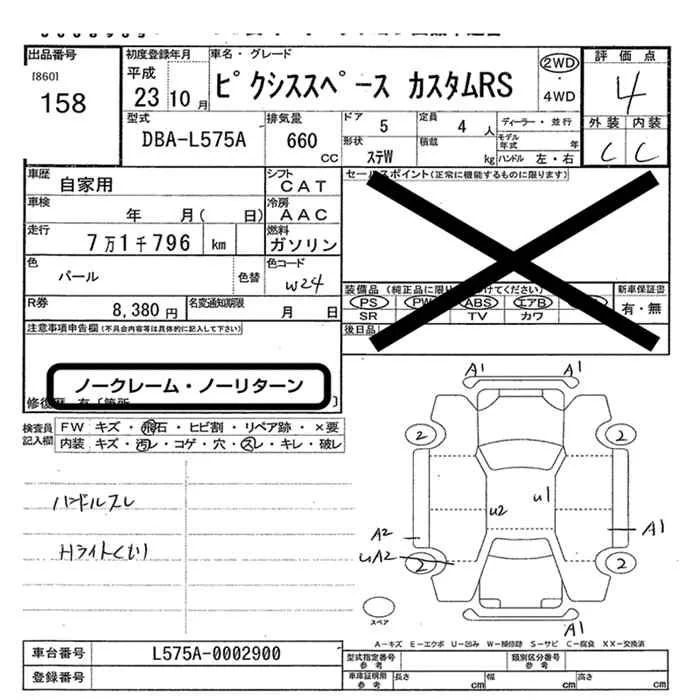 出品番号
[860]
158
初度登録年月
平成
23 10 月
車名・グレード
ピクシススペース カスタムRS
2WD
4WD
評価点
4
外装 内装
C C
型式
DBA-L575A
排気量
660
CC
ドア 5
定員 4 人
ディーラー・並行
形状
ステW
積載
kg
モデル年式 年
ハンドル 左・右
車歴
自家用
シフト
CAT
車検
年 月( 日)
冷房
AAC
走行
7万1千796 km
燃料
ガソリン
色
パール
色替
色コード
W24
R券
8,380 円
名変通知期限
月 日
セールスポイント(正常に機能するものに限ります)
装備品 (純正品に限り
けてください)
PS PW ABS エアB
SR TV カワ
新車保証書
有・無
後日品
注意事項申告欄(不具合内容等は具体的に記入して下さい)
ノークレーム・ノーリターン
検査員記入欄
FW キズ・飛石・ヒビ割・リペア跡・×要
内装 キズ・汚レ・コゲ・穴・スレ・キレ・破レ
ハンドルスレ
Hライトくもり
A1
2 2
u2 u1
A2 A1
uA2
2 2
A1
スペア
A-キズ E-エクボ U-凹み W-補修跡 S-サビ C-腐食 XX-交換済
車台番号
L575A-0002900
登録番号
型式指定番号
参考
類別区分番号
参考
車庫証明用
参考
長さ cm
幅 cm
高さ cm